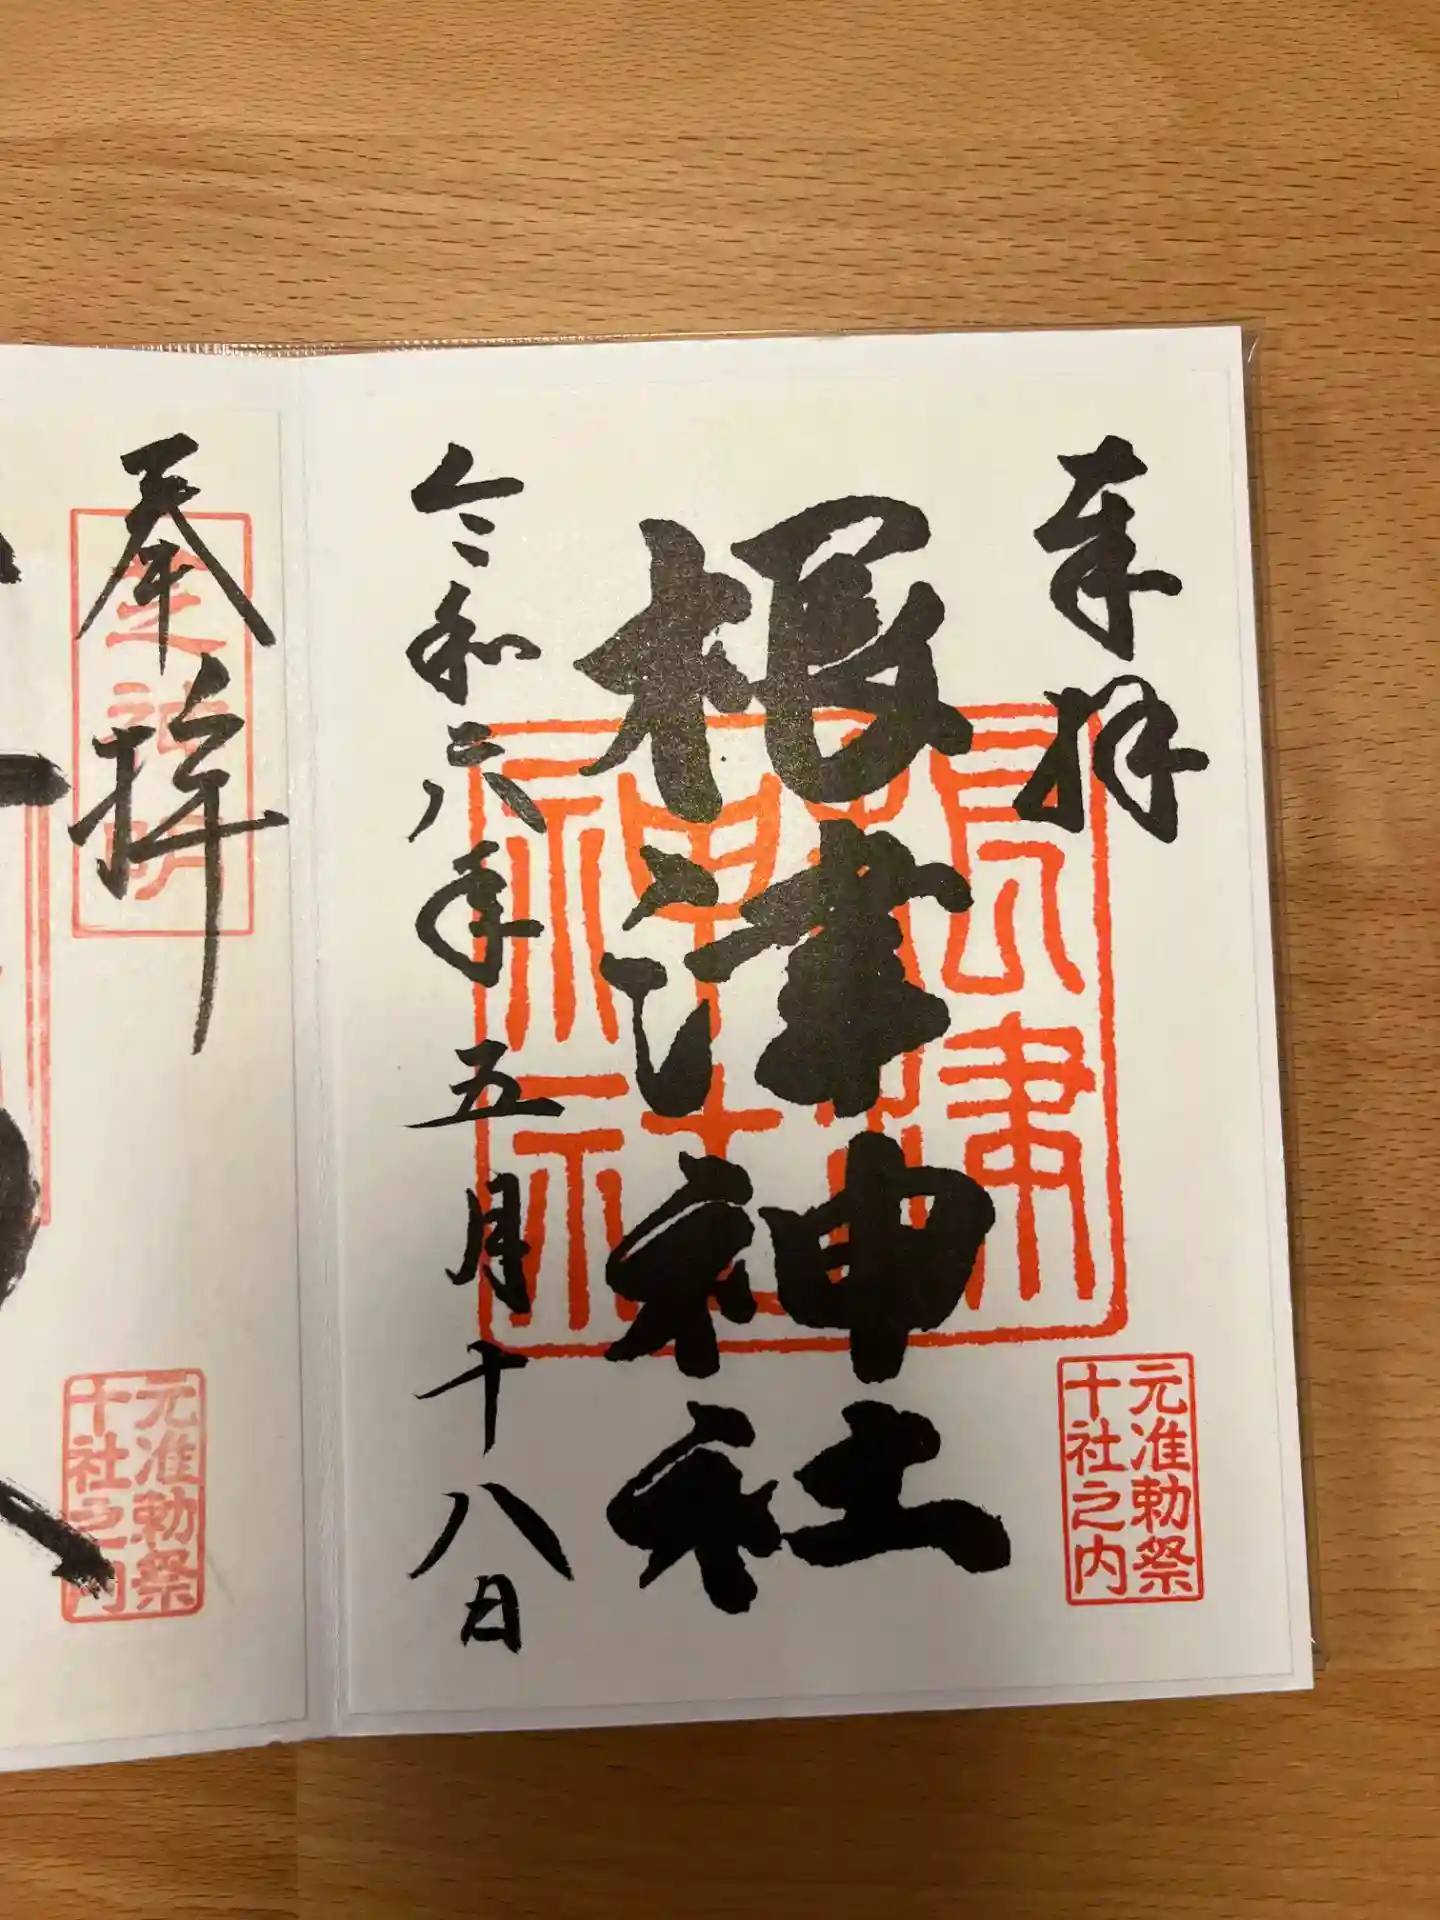 奉拝
根津神社
根津神社
元准勅祭
十社之内
令和六年五月十八日
奉拝
芝神明
元准勅祭
十社之内